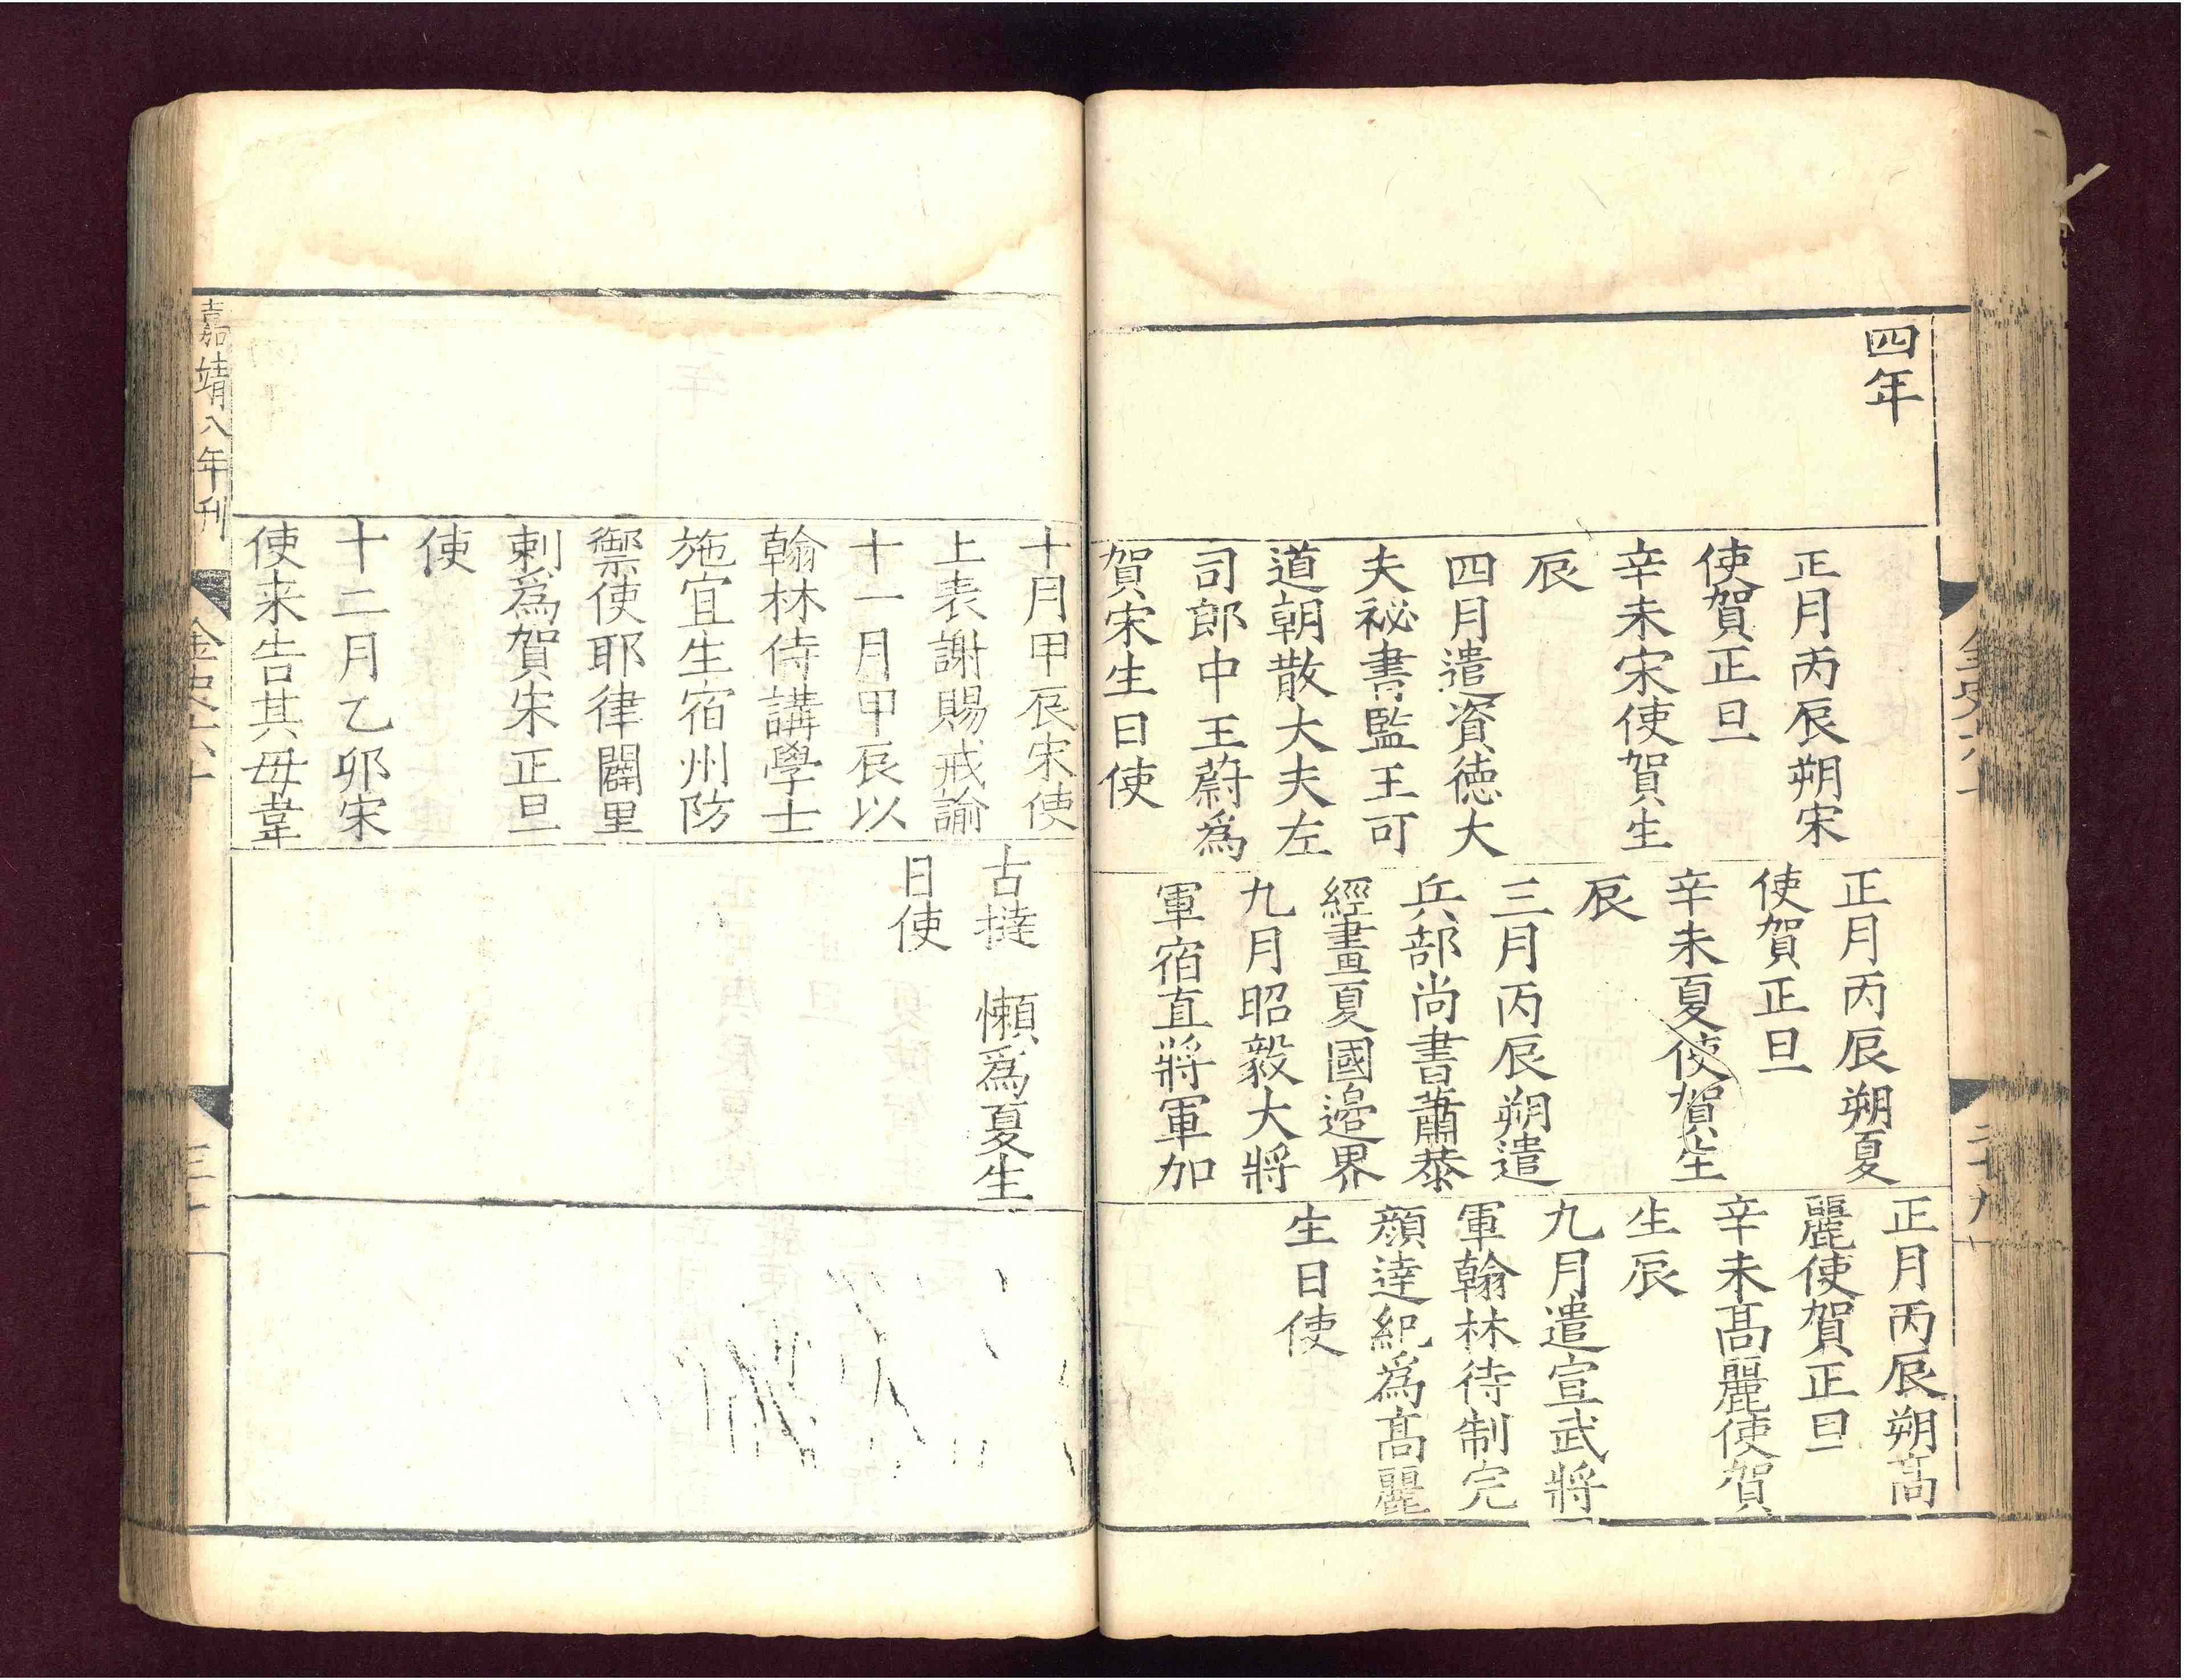 四年
正月丙辰朔宋
使賀正旦
辛未宋使賀生
辰
四月遣資德大
夫祕書監王可
道朝散大夫左
司郎中王蔚爲
賀宋生日使
正月丙辰朔夏
使賀正旦
辛未夏使賀生
辰
三月丙辰朔遣
兵部尚書蕭恭
經畫夏國邉界
九月昭毅大將
軍宿直將軍加
正月丙辰朔髙
麗使賀正旦
辛未髙麗使賀
生辰
九月遣宣武將
軍翰林待制完
顔達紀爲髙麗
生日使
十月甲辰宋使
上表謝賜戒諭
十一月甲辰以
翰林侍講學士
施宜生宿州防
禦使耶律闢里
剌爲賀宋正旦
使
十二月乙卯宋
使来告其母韋
古撻 懶爲夏生
日使
嘉靖八年刊